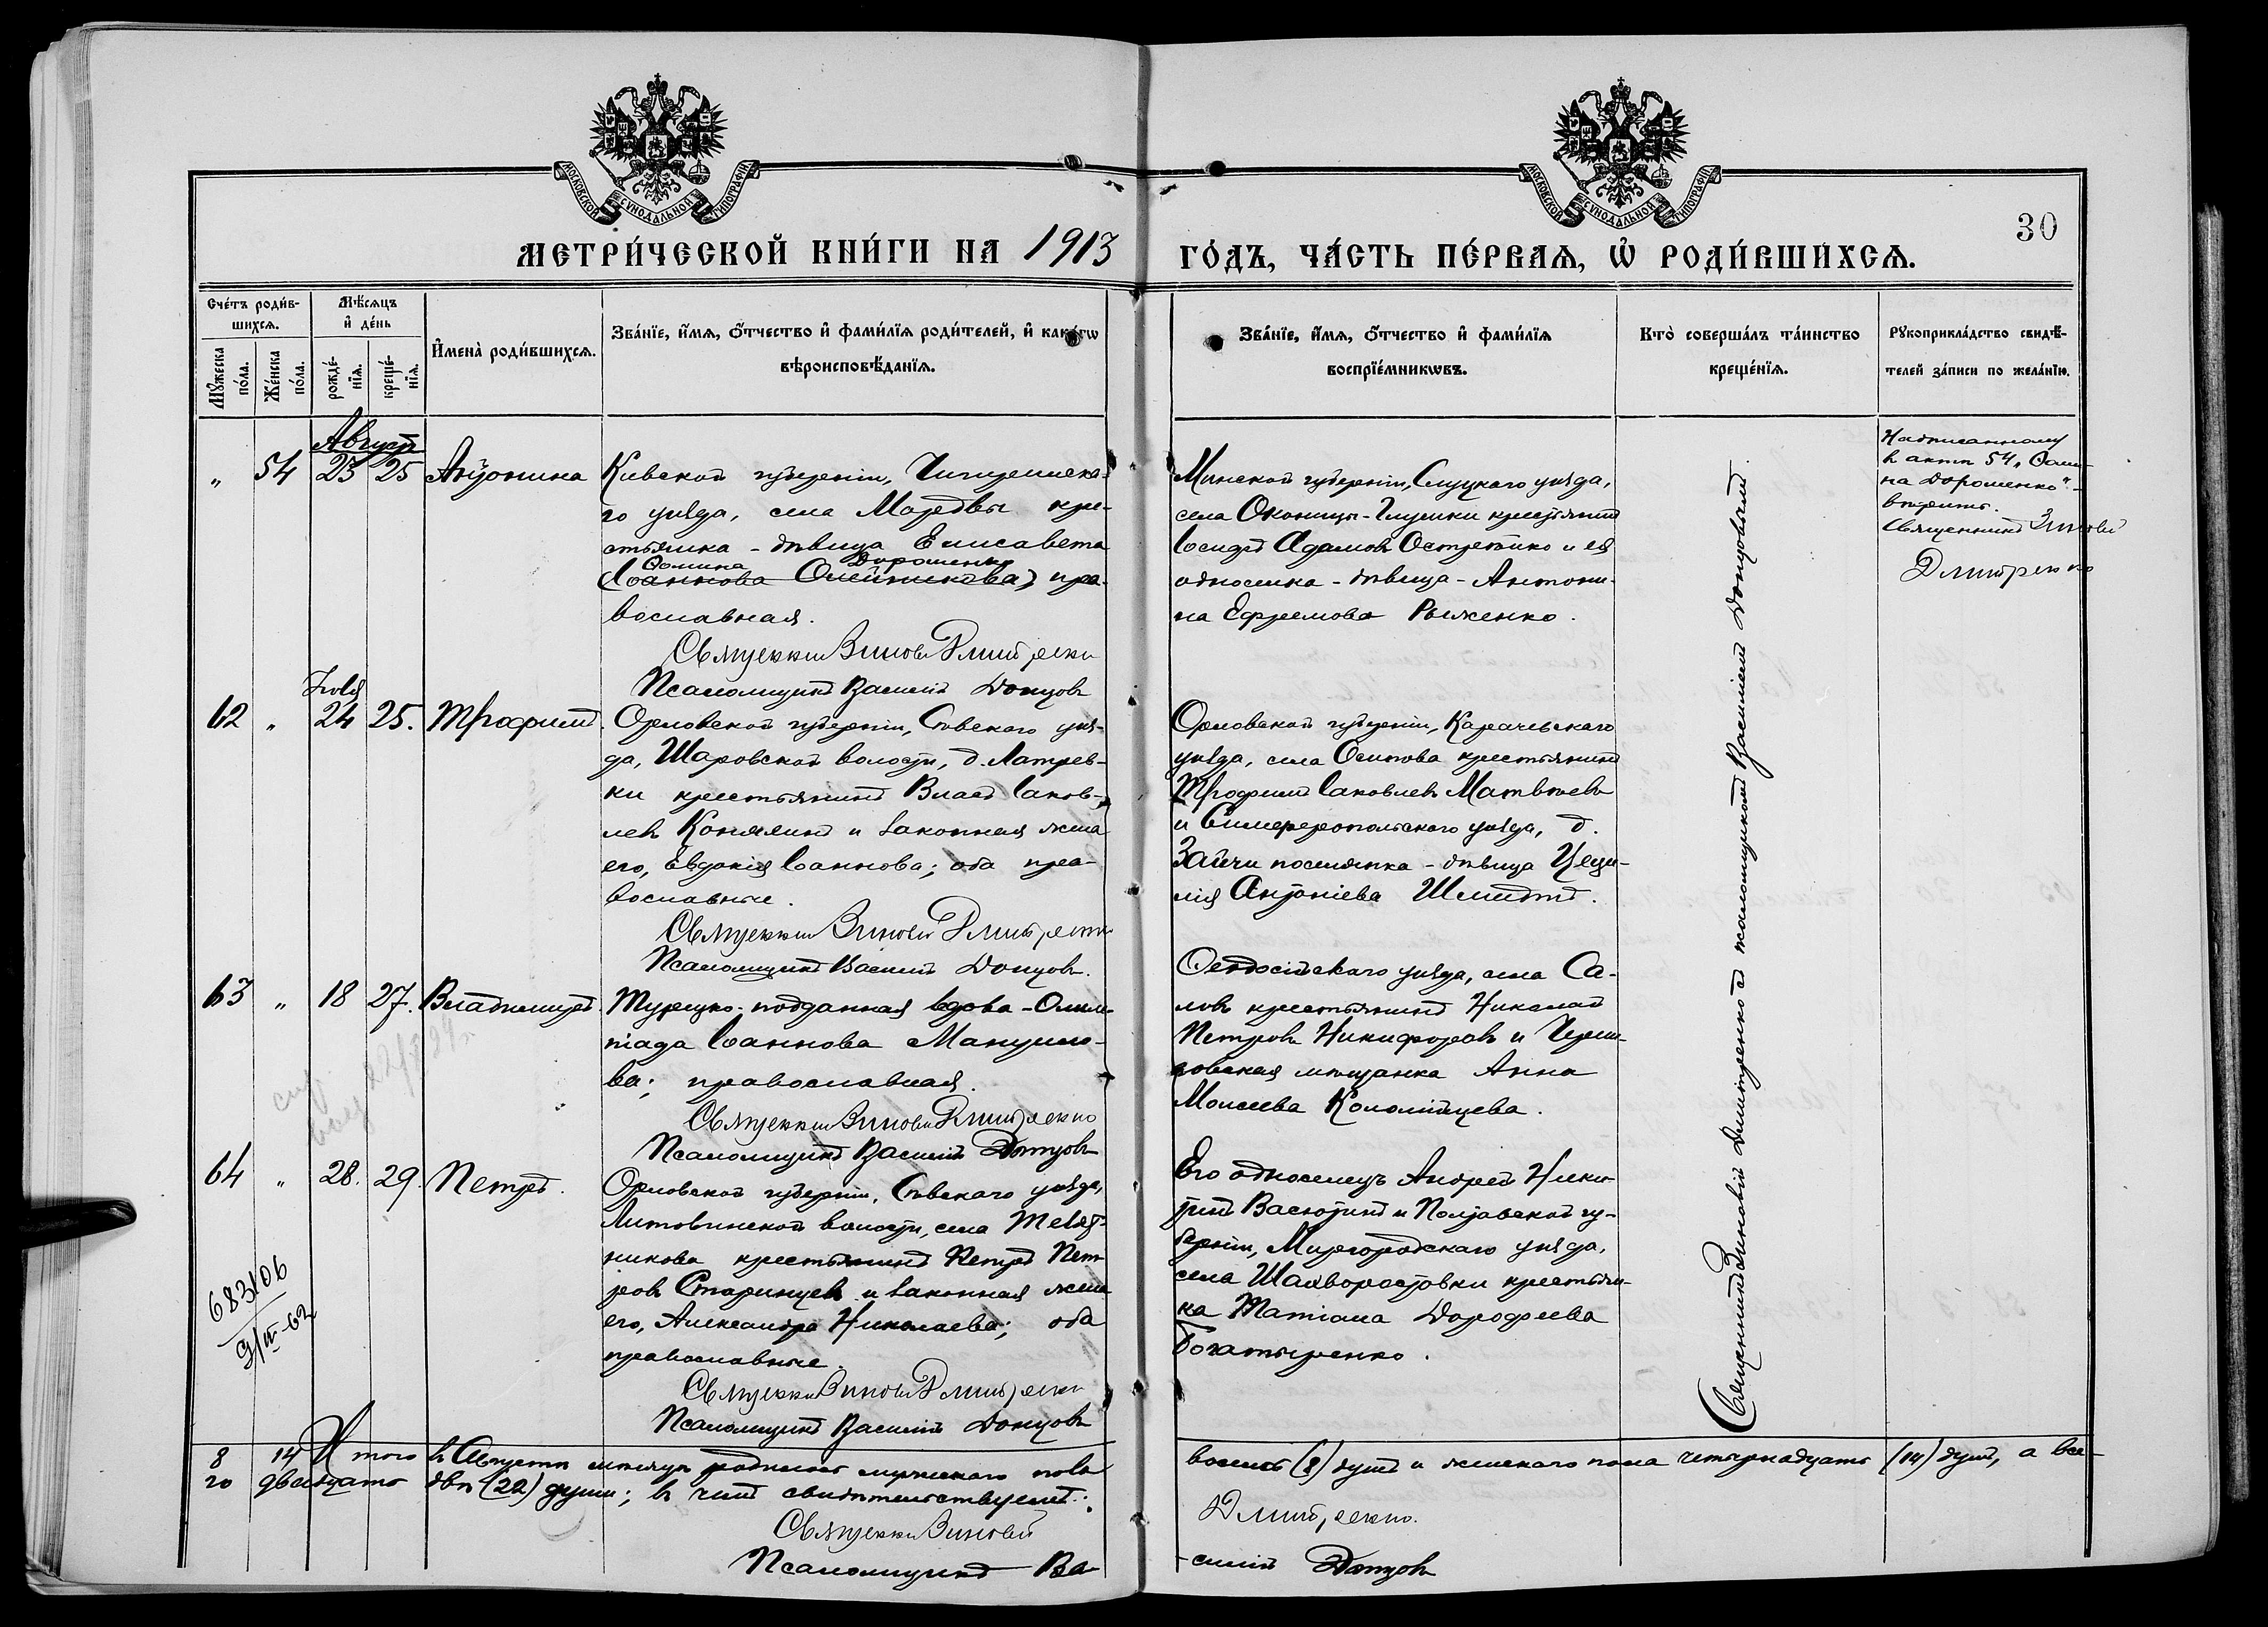 МОСКОВСКОЙ СУНОДАЛЬНОЙ ТИПОГРАФІИ
МОСКОВСКОЙ СУНОДАЛЬНОЙ ТИПОГРАФІИ
30
МЕТРИ́ЧЕСКОЙ КНИ́ГИ НА 1913 ГО́ДЪ, ЧА́СТЬ ПЕ́РВАѦ, Ѽ РОДИ́ВШИХСѦ.
Сче́тъ роди́в-
шихсѧ.
Мꙋ́жеска
по́ла.
Же́нска
по́ла.
Мѣ́сѧцъ
и҆ де́нь
рожде́-
нїѧ.
креще́-
нїѧ.
И҆мена̀ роди́вшихсѧ.
Зва́нїе, и҆́мѧ, ѻ҆́тчество и҆ фами́лїѧ роди́телей, и҆ како́гѡ
вѣроисповѣ́данїѧ.
Зва́нїе, и҆́мѧ, ѻ҆́тчество и҆ фами́лїѧ
воспрїе́мникѡвъ.
Кто̀ соверша́лъ та́инство
креще́нїѧ.
Рꙋкоприкла́дство свидѣ́-
телей за́писи по жела́нїю.
Августъ
„ 54 23 25 Антонина
Кіевской губерніи, Чигиринска-
го уѣзда, села Маредвы кре-
стьянка - дѣвица Елисавета
Ѳомина Дорошенко
(Іоаннова Олейникова) пра-
вославная.
Священникъ Зиновій Дмитренко
Псаломщикъ Василій Донцовъ
Минской губерніи, Слуцкаго уѣзда,
села Оконицы-Глушки крестьянинъ
Іосифъ Адамовъ Острейко и ея
односелка - дѣвица - Антони-
на Ефремова Рыженко.
Надписанному
въ актѣ 54 „Ѳоми-
на Дорошенко"-
вѣрить.
Священникъ Зиновій
Дмитренко
Іюля
62 „ 24 25. Трофимъ
Орловской губерніи, Сѣвскаго уѣз-
да, Шаровской волости, д. Лагрев-
ки крестьянинъ Власъ Іаков-
левъ Конялинъ и законная жена
его, Евдокія Іоаннова; оба пра-
вославные.
Священникъ Зиновій Дмитренко
Псаломщикъ Василій Донцовъ.
Орловской губерніи, Карачевскаго
уѣзда, села Осинова крестьянинъ
Трофимъ Іаковлевъ Матвѣевъ
и Симферопольскаго уѣзда, д.
Зайчи поселянка - дѣвица Цеци-
лія Антоніева Шмидтъ.
63 „ 18 27. Владиміръ
Турецко-подданная вдова - Олим-
піада Іоаннова Мануило-
ва; православная.
Священникъ Зиновій Дмитренко
Псаломщикъ Василій Донцовъ
Ѳеодосійскаго уѣзда, села Са-
ловъ крестьянинъ Николай
Петровъ Никифоровъ и Черни-
говская мѣщанка Анна
Моисеева Коломійцева.
64 „ 28. 29. Петръ.
Орловской губерніи, Сѣвскаго уѣзда,
Литовинской волости, села Мелят-
никова крестьянинъ Петръ Пет-
ровъ Старинцевъ и законная жена
его, Александра Николаева; оба
православные.
Священникъ Зиновій Дмитренко
Псаломщикъ Василій Донцовъ
Его односелецъ Андрей Ники-
тинъ Васютинъ и Полтавской гу-
берніи, Миргородскаго уѣзда,
села Шахворостовки крестьян-
ка Татіана Дорофеева
Богатыренко.
683106
9/IV-62
Священникъ Зиновій Дмитренко съ псаломщикомъ Василіемъ Донцовымъ
8 14 Итого въ Августѣ мѣсяцѣ родилось мужескаго пола восемь (8) душъ и женскаго пола четырнадцать (14) душъ, а все-
го двадцать двѣ (22) души; въ чемъ свидѣтельствуемъ:
Священникъ Зиновій Дмитренко.
Псаломщикъ Ва-силій Донцовъ